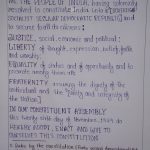 WE, THE PEOPLE OF INDIA, having solemnly
resolved to constitute India into a
SOCIALIST SECULAR DEMOCRATIC REPUBLIC and
to secure to all its citizens:
JUSTICE, social, economic and political;
LIBERTY of thought, expression, belief, faith
and worship;
EQUALITY of status and of opportunity and to
promote among them all
FRATERNITY assuring the dignity of the
individual and the unity and integrity of
the Nation
IN OUR CONSTITUENT ASSEMBLY
this twenty sixth day of November, 1949 do
HEREBY ADOPT, ENACT AND GIVE TO
OURSELVES THIS CONSTITUTION